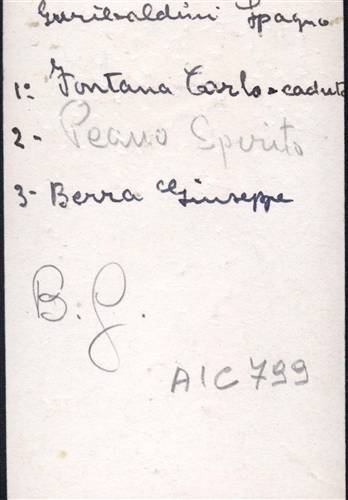 Garibaldini Spagna
1º Fontana Carlo - caduto
2- Peano Spirito
3- Berra Giuseppe
B. G.
AIC 799